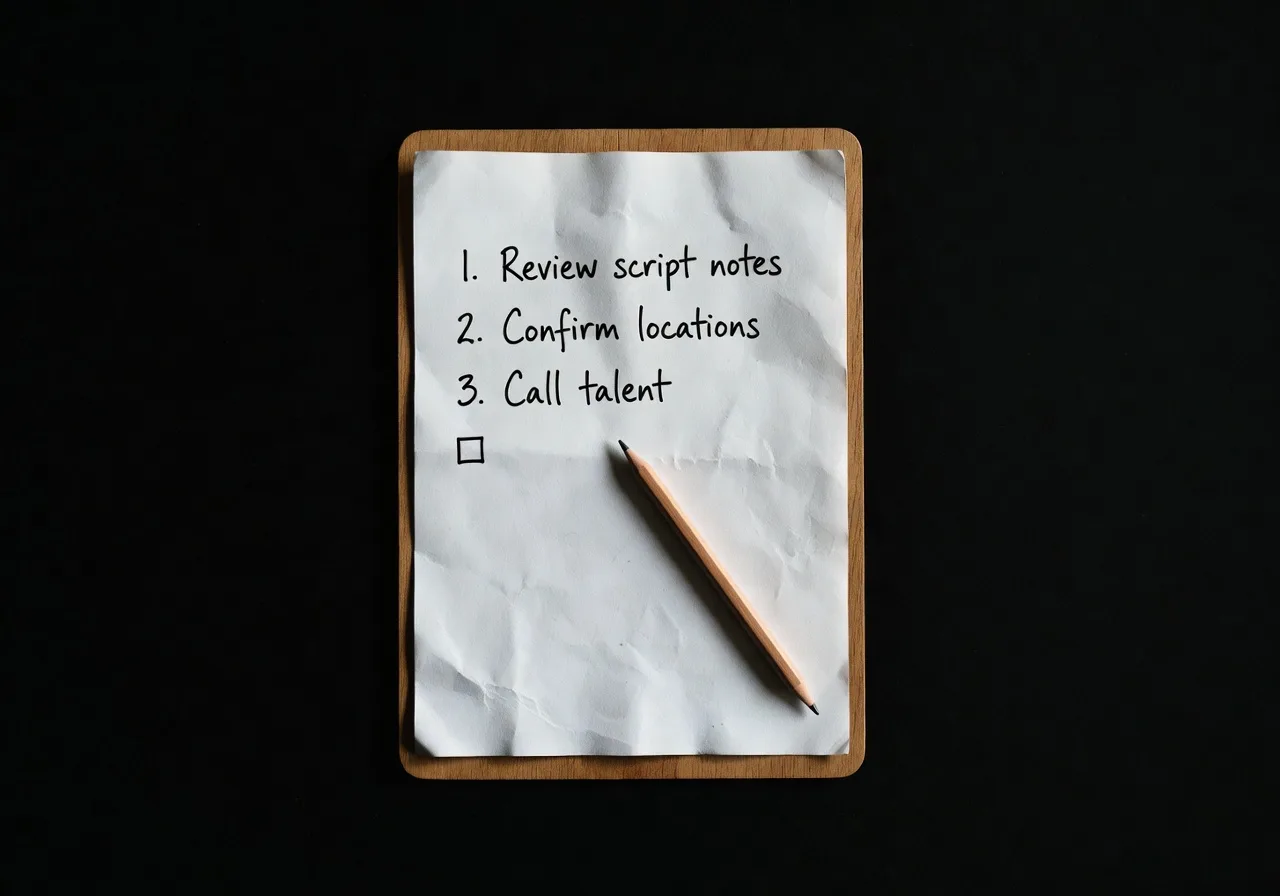 1. Review script notes
2. Confirm locations
3. Call talent
☐